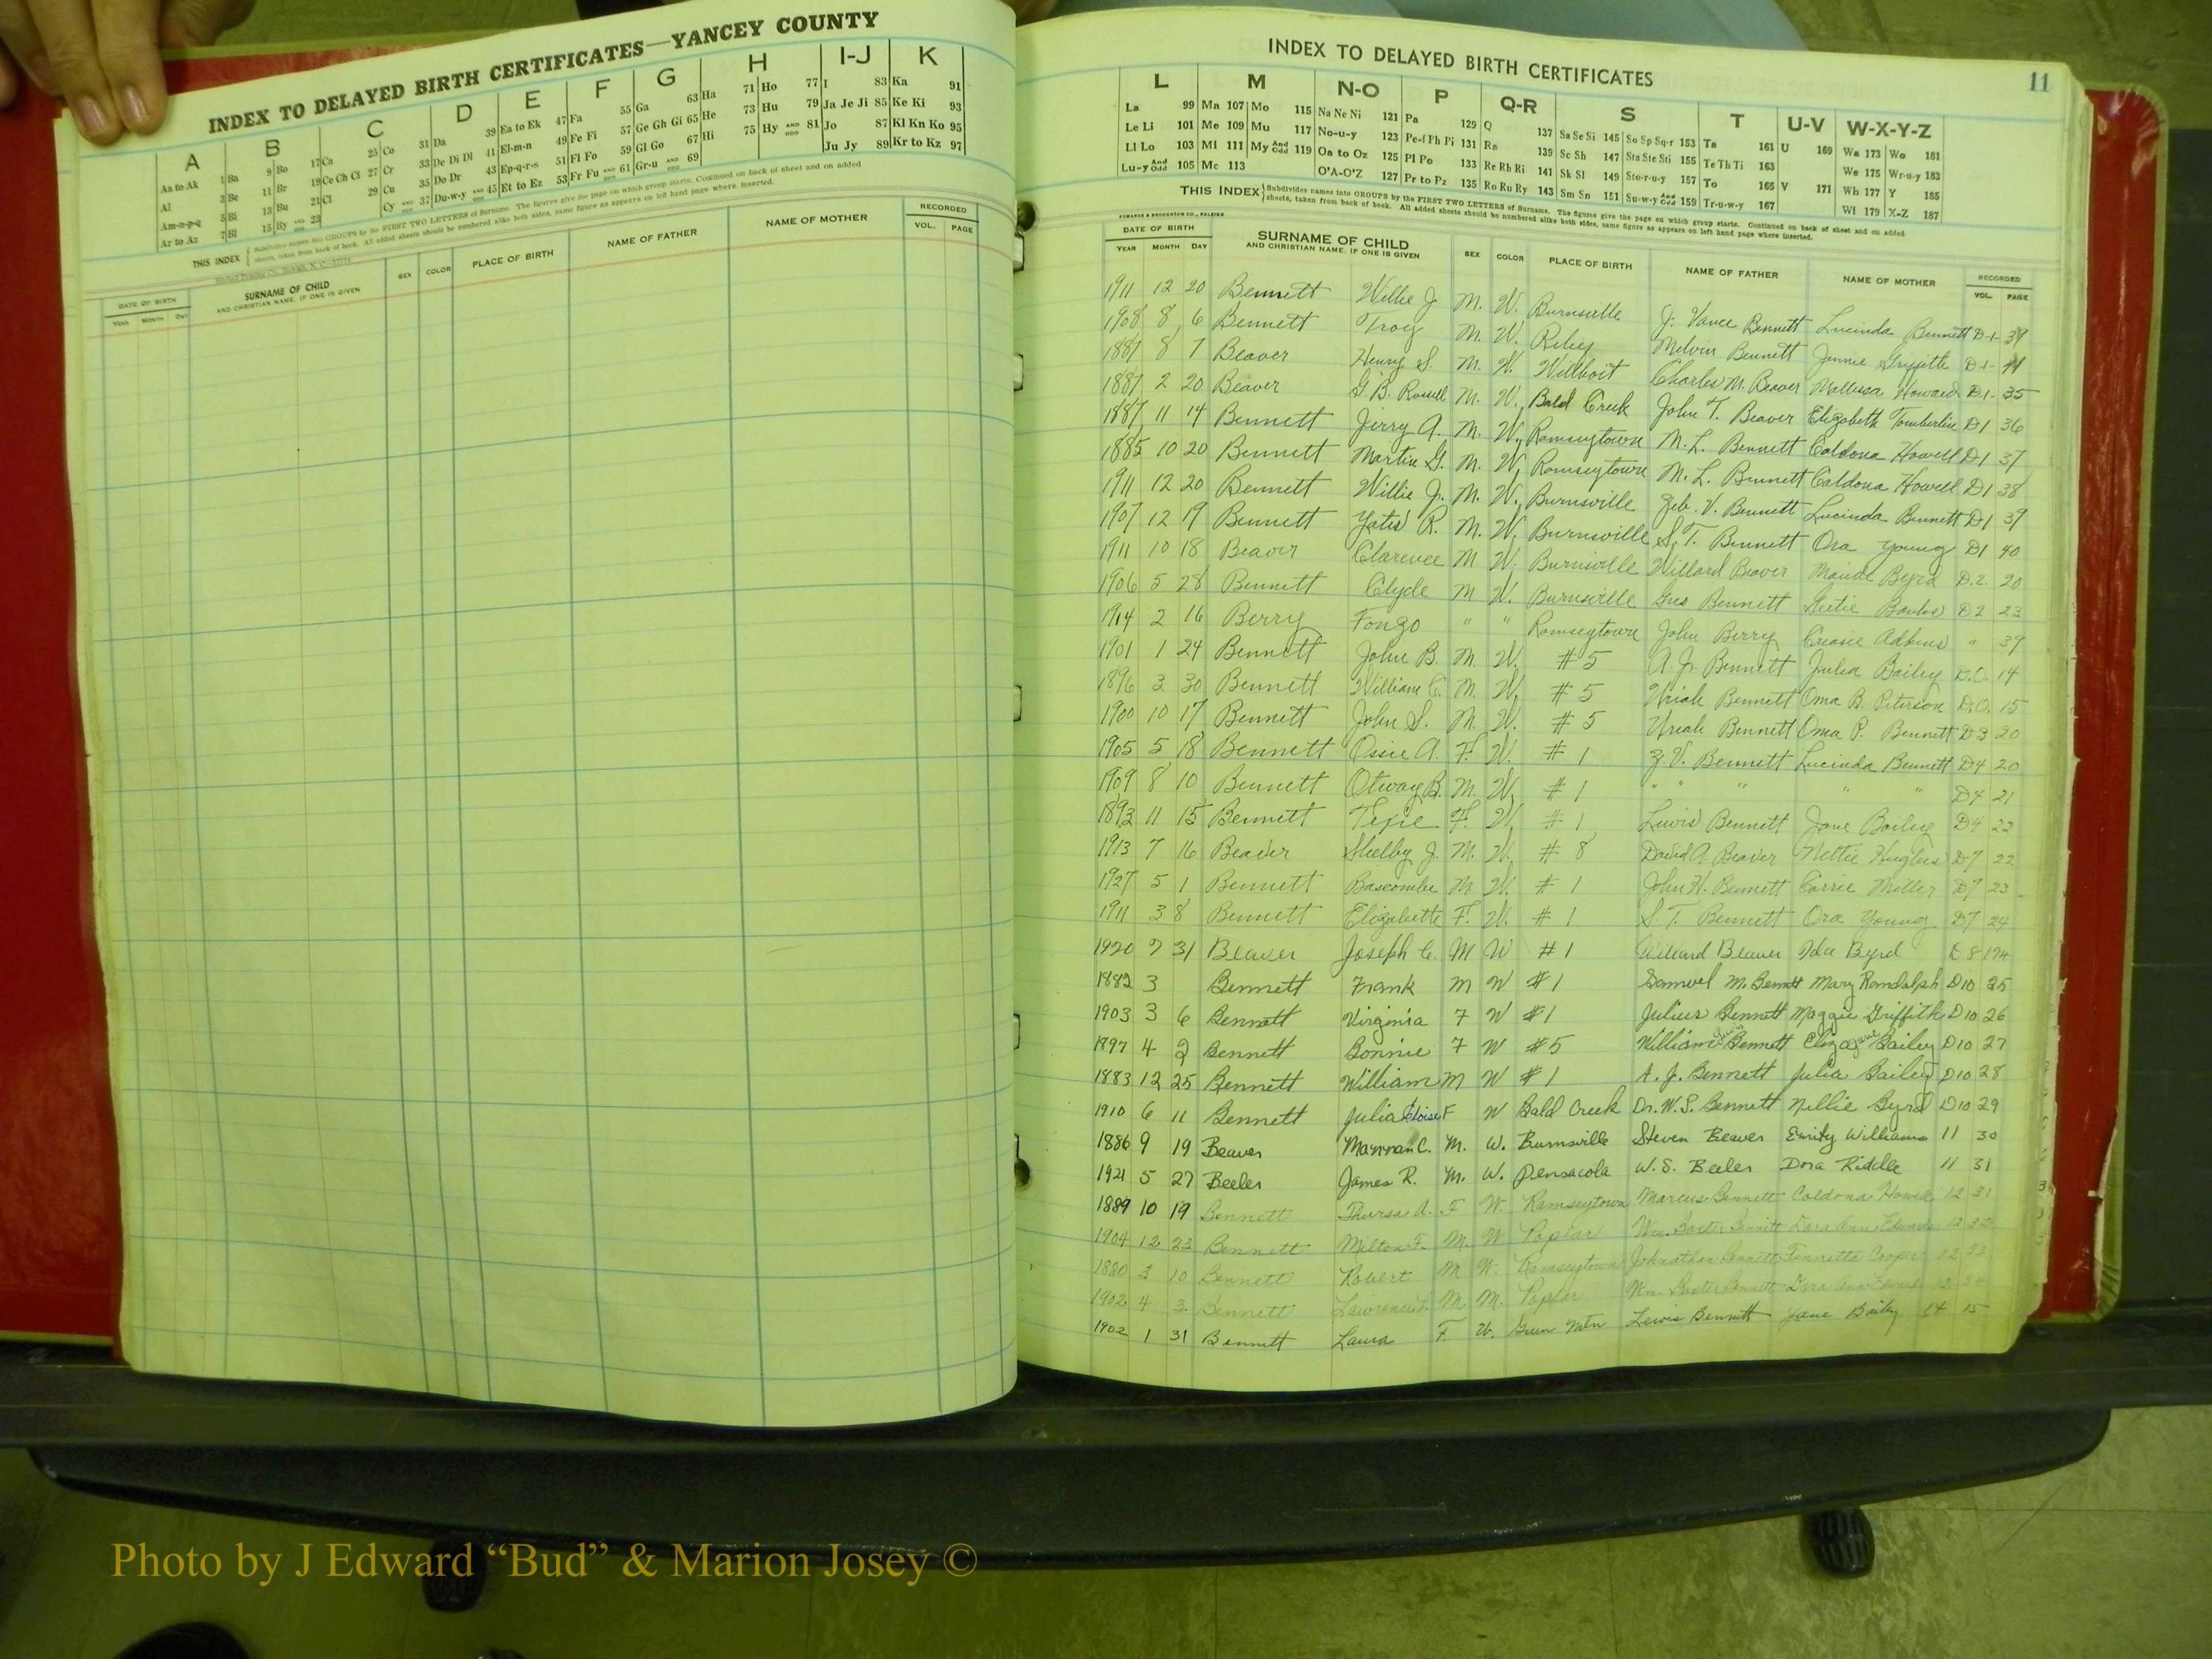 INDEX TO DELAYED BIRTH CERTIFICATES—YANCEY COUNTY
A B C D E F G H I-J K
Aa to Ak 1 Ba 9 Bo 17 Ca 25 Co 31 Da 39 Ea to Ek 47 Fa 55 Ga 63 Ha 71 Ho 77 I 83 Ka 91
Al 3 Be 11 Br 19 Ce Ch Ci 27 Cr 33 De Di Dl 41 El-m-n 49 Fe Fi 57 Ge Gh Gi 65 He 73 Hu 79 Ja Je Ji 85 Ke Ki 93
Am-n-p-q 5 Bi 13 Bu 21 Cl 29 Cu 35 Do Dr 43 Ep-q-r-s 51 Fl Fo 59 Gl Go 67 Hi 75 Hy AND ODD 81 Jo 87 Kl Kn Ko 95
Ar to Az 7 Bl 15 By AND ODD 23 Cy AND ODD 37 Du-w-y AND ODD 45 Et to Ez 53 Fr Fu AND ODD 61 Gr-u AND ODD 69 Ju Jy 89 Kr to Kz 97
THIS INDEX { Subdivides names into GROUPS by the FIRST TWO LETTERS of Surname. The figures give the page on which group starts. Continued on back of sheet and on added
sheets, taken from back of book. All added sheets should be numbered alike both sides, same figure as appears on left hand page where inserted.
DATE OF BIRTH SURNAME OF CHILD SEX COLOR PLACE OF BIRTH NAME OF FATHER NAME OF MOTHER RECORDED
YEAR MONTH DAY AND CHRISTIAN NAME, IF ONE IS GIVEN VOL. PAGE
INDEX TO DELAYED BIRTH CERTIFICATES 11
L M N-O P Q-R S T U-V W-X-Y-Z
La 99 Ma 107 Mo 115 Na Ne Ni 121 Pa 129 Q 137 Sa Se Si 145 So Sp Sq-r 153 Ta 161 U 169 Wa 173 Wo 181
Le Li 101 Me 109 Mu 117 No-u-y 123 Pe-f Ph Pi 131 Ra 139 Sc Sh 147 Sta Ste Sti 155 Te Th Ti 163 We 175 Wr-u-y 183
Ll Lo 103 Mi 111 My And Odd 119 Oa to Oz 125 Pl Po 133 Re Rh Ri 141 Sk Sl 149 Sto-r-u-y 157 To 165 V 171 Wh 177 Y 185
Lu-y And Odd 105 Mc 113 O'A-O'Z 127 Pr to Pz 135 Ro Ru Ry 143 Sm Sn 151 Su-w-y And Odd 159 Tr-u-w-y 167 Wi 179 X-Z 187
THIS INDEX { Subdivides names into GROUPS by the FIRST TWO LETTERS of Surname. The figures give the page on which group starts. Continued on back of sheet and on added
sheets, taken from back of book. All added sheets should be numbered alike both sides, same figure as appears on left hand page where inserted.
EDWARDS & BROUGHTON CO., RALEIGH
DATE OF BIRTH SURNAME OF CHILD SEX COLOR PLACE OF BIRTH NAME OF FATHER NAME OF MOTHER RECORDED
YEAR MONTH DAY AND CHRISTIAN NAME, IF ONE IS GIVEN VOL. PAGE
1911 12 20 Bennett Willie J. M. W. Burnsville J. Vance Bennett Lucinda Bennett D-1- 39
1908 8 6 Bennett Troy M. W. Riley Melvin Bennett Jennie Griffith D-1-
1887 8 7 Beaver Henry S. M. W. Willhoit Charles M. Beaver Mellissa Howard D-1- 35
1887 2 20 Beaver G. B. Russell M. W. Bald Creek John T. Beaver Elizabeth Tomberlin D1 36
1887 11 14 Bennett Jerry A. M. W. Ramseytown M. L. Bennett Caldona Howell D1 37
1885 10 20 Bennett Martin G. M. W. Ramseytown M. L. Bennett Caldona Howell D1 38
1911 12 20 Bennett Willie J. M. W. Burnsville Zeb. V. Bennett Lucinda Bennett D1 39
1907 12 19 Bennett Yates R. M. W. Burnsville S. T. Bennett Ora Young D1 40
1911 10 18 Beaver Clarence M W. Burnsville Willard Beaver Maude Byrd D.2. 20
1906 5 28 Bennett Clyde M W. Burnsville Gus Bennett Gertie Banks D2 23
1914 2 16 Berry Fonzo " " Ramseytown John Berry Creasie Adkins " 39
1901 1 24 Bennett John B. M. W. #5 A. J. Bennett Julia Bailey D.C. 14
1896 3 30 Bennett William C. M. W. #5 Uriah Bennett Oma B. Peterson D.C. 15
1900 10 17 Bennett John S. M. W. #5 Uriah Bennett Oma P. Bennett D3 20
1905 5 18 Bennett Ossie A. F. W. #1 Z. V. Bennett Lucinda Bennett D4 20
1909 8 10 Bennett Otway B. M. W. #1 " " " " D4 21
1893 11 15 Bennett Texie F. W. #1 Lewis Bennett Jane Bailey D4 22
1913 7 16 Beaver Shelby J. M. W. #8 David A. Beaver Nettie Hughes D7 22
1927 5 1 Bennett Bascombe M W. #1 John H. Bennett Carrie Miller D7 23
1911 3 8 Bennett Elizabeth F. W. #1 S. T. Bennett Ora Young D7 24
1920 7 31 Beaver Joseph C. M W #1 Willard Beaver Ida Byrd D8 174
1882 3 Bennett Frank M W #1 Samuel M. Bennett Mary Randolph D10 25
1903 3 6 Bennett Virginia F W #1 Julius Bennett Maggie Griffith D10 26
1897 4 2 Bennett Bonnie F W #5 William Bennett Eliza Jane Bailey D10 27
1883 12 25 Bennett William M W #1 A. J. Bennett Julia Bailey D10 28
1910 6 11 Bennett Julia Eloise F W Bald Creek Dr. W. P. Bennett Nellie Byrd D10 29
1886 9 19 Beaver Mannan C. M. W. Burnsville Steven Beaver Emity Williams 11 30
1921 5 27 Beeler James R. M. W. Pensacola W. S. Beeler Dora Riddle 11 31
1889 10 19 Bennett Thursa A. F W. Ramseytown Marcus Bennett Caldona Howell 12 31
1904 12 23 Bennett Milton F. M. W Poplar Wm. Baxter Bennett Dora Ann Edwards 12 32
1880 3 10 Bennett Robert M W. Ramseytown Johnathan Bennett Finnetta Cooper 12 33
1902 4 3 Bennett Lawrence M M. Poplar Wm. Baxter Bennett Dora Ann
1902 1 31 Bennett Laura F. W. Green Mtn Lewis Bennett Jane Baily 14 15
Photo by J Edward “Bud” & Marion Josey ©